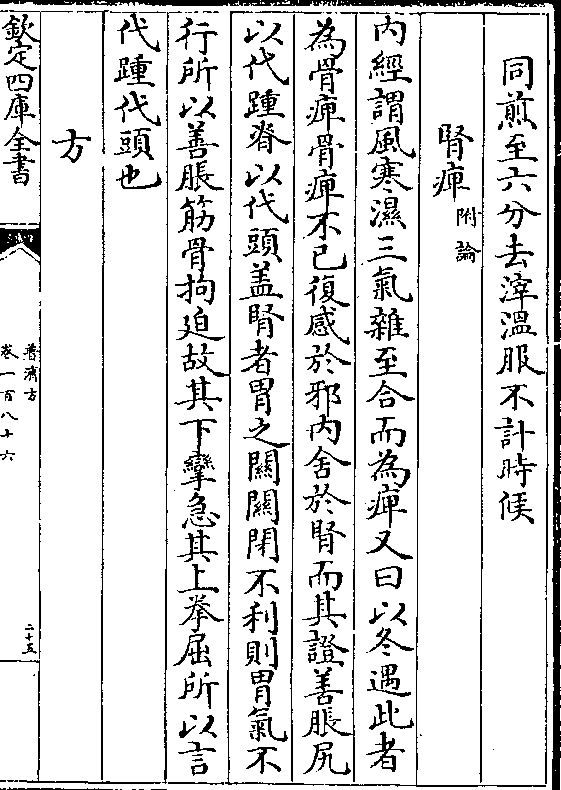 同煎至六分去滓溫服不計時候
腎痺附論
內經謂風寒濕三氣雜至合而為痺又曰以冬遇此者
為骨痺骨痺不已復感於邪內舍於腎而其證善脹尻
以代踵脊以代頭盖腎者胃之關關閉不利則胃氣不
行所以善脹筋骨拘廹故其下攣急其上拳屈所以言
代踵代頭也
方
欽定四庫全書
普濟方
卷一百八十六
二十五